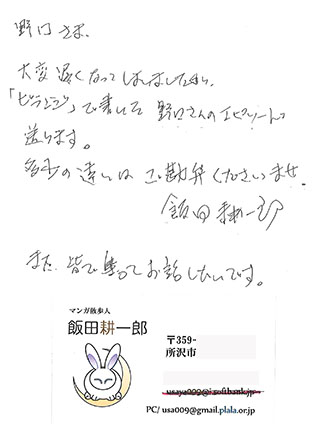 野口さま、
大変遅くなってしまいましたが、
「ビランジ」で書いた野口さんのエピソード
送ります。
多少の違いはご勘弁くださいませ。
飯田耕一郎
また皆で集ってお話したいです。
マンガ散歩人
飯田耕一郎
〒359-
所沢市
usaya009@i.softbank.jp
PC/ usa009@gmail.plala.or.jp